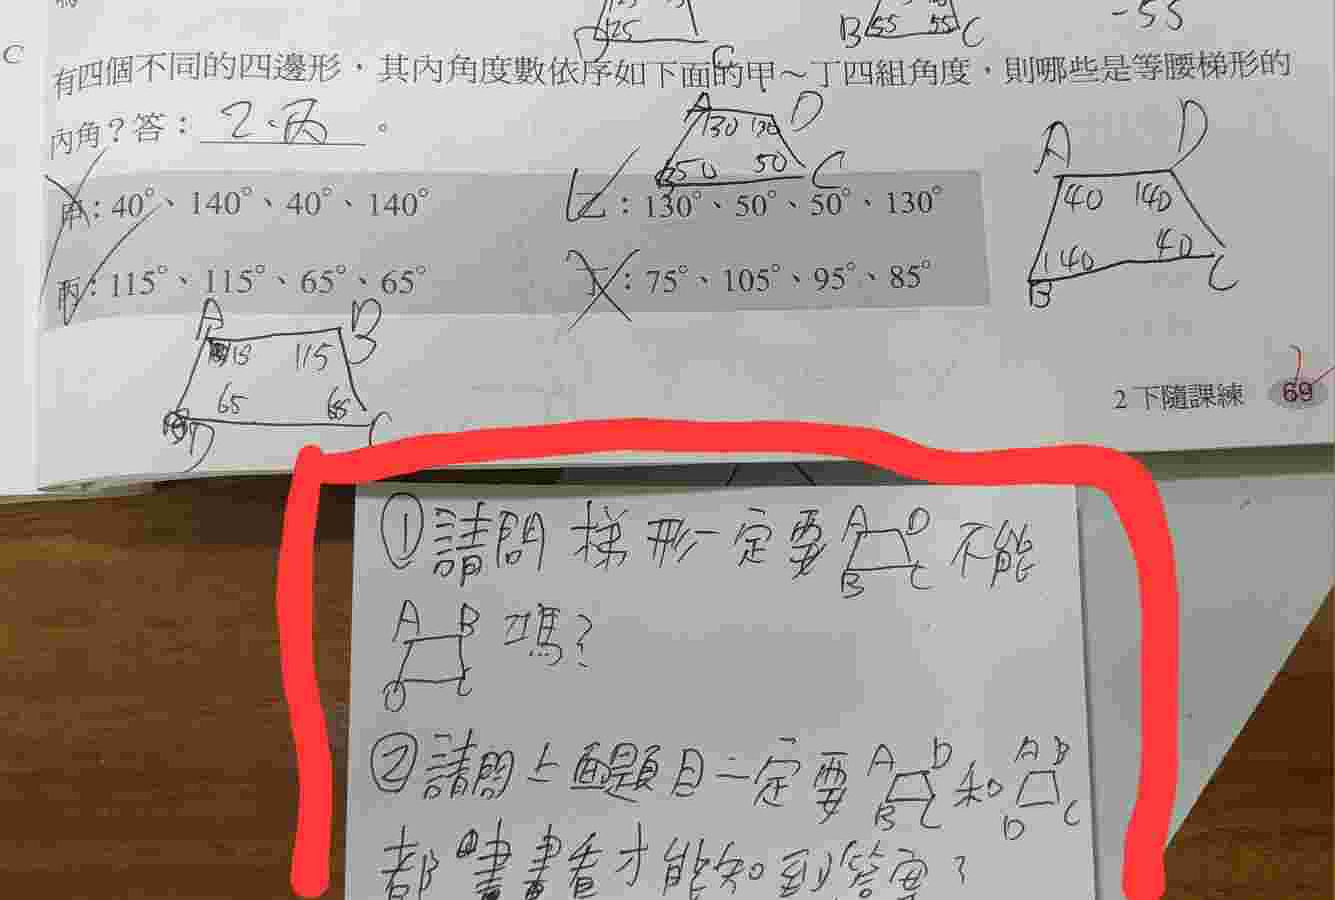 C
25
B 55 55 C
-55
有四個不同的四邊形，其內角度數依序如下面的甲～丁四組角度，則哪些是等腰梯形的
內角？答：乙、丙。
A D
130 130
50 50 C
甲：40°、140°、40°、140°
乙：130°、50°、50°、130°
丙：115°、115°、65°、65°
丁：75°、105°、95°、85°
A D
40 140
140 40
B C
A D
115
65 65
D C
2下隨課練 69
①請問梯形一定要 A D B C 不能
A B D C 嗎？
②請問上面題目一定要 A D B C 和 A B D C
都畫畫看才能知到答案？